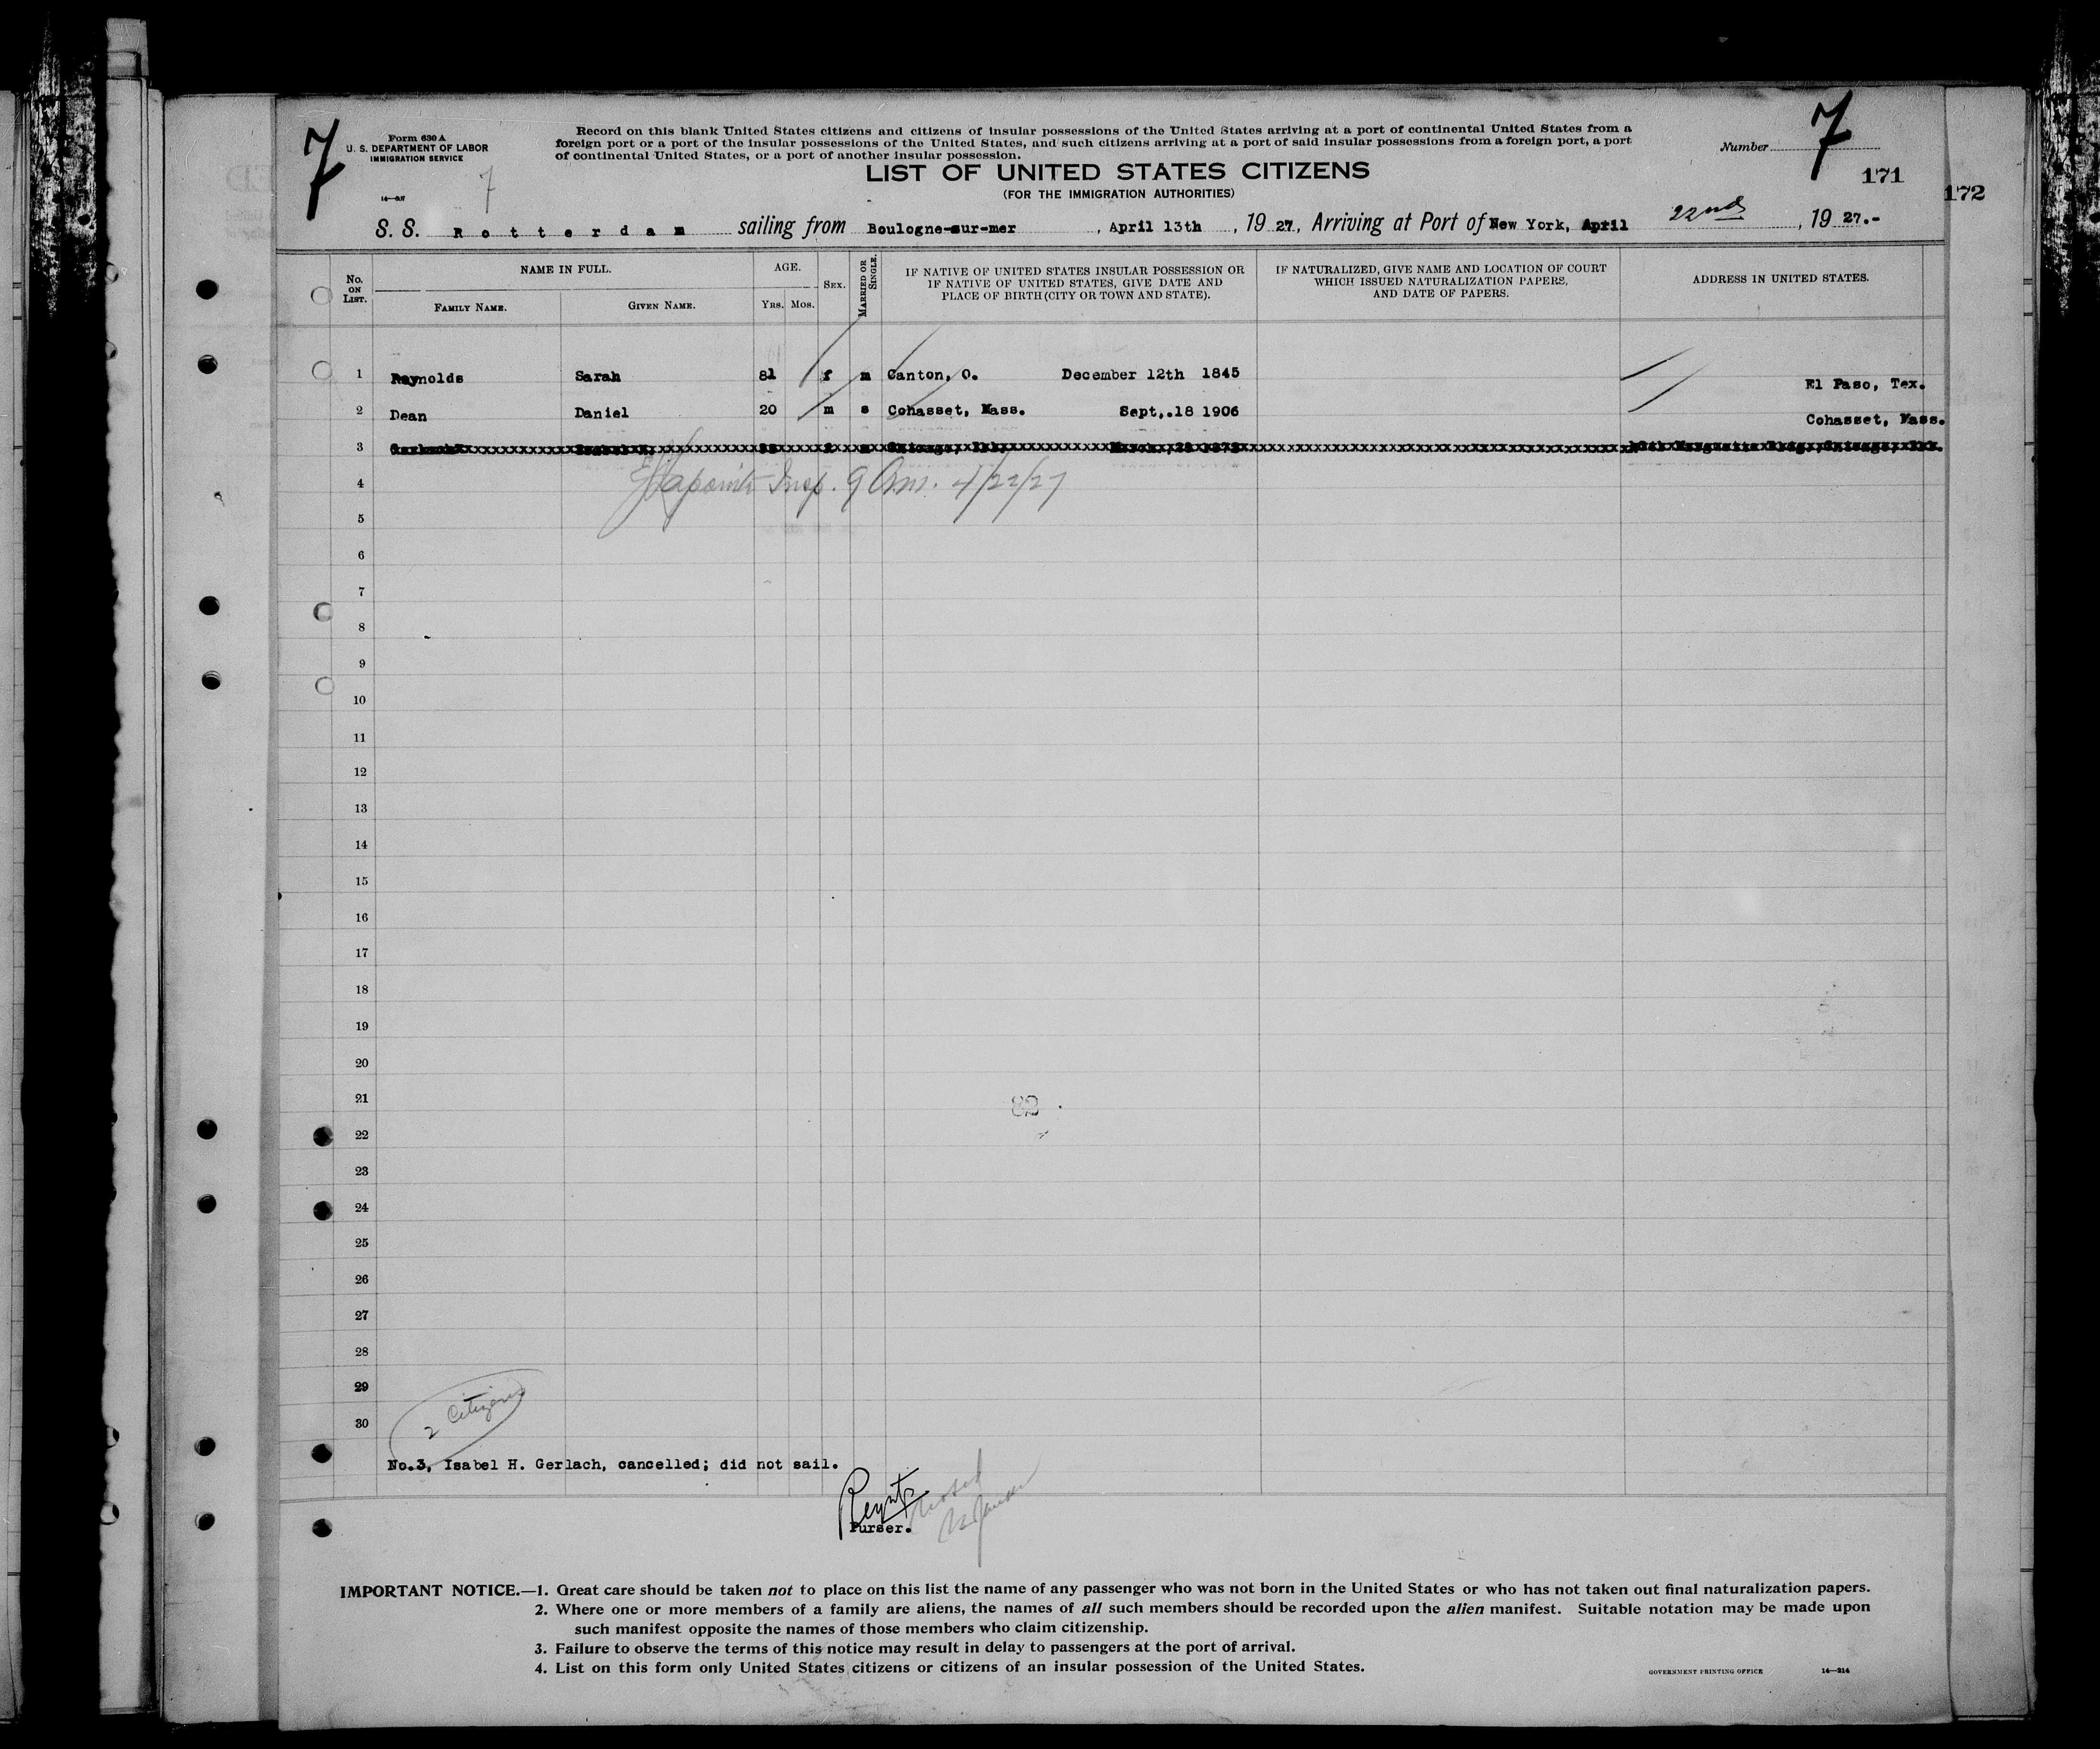 7
Form 630 A
U. S. DEPARTMENT OF LABOR
IMMIGRATION SERVICE
7
Record on this blank United States citizens and citizens of insular possessions of the United States arriving at a port of continental United States from a
foreign port or a port of the insular possessions of the United States, and such citizens arriving at a port of said insular possessions from a foreign port, a port
of continental United States, or a port of another insular possession.
Number 7
LIST OF UNITED STATES CITIZENS
171
172
(FOR THE IMMIGRATION AUTHORITIES)
S. S. Rotterdam sailing from Boulogne-sur-mer, April 13th, 1927, Arriving at Port of New York, April 22nd, 1927.-
No. ON LIST. NAME IN FULL. AGE. SEX. MARRIED OR SINGLE. IF NATIVE OF UNITED STATES INSULAR POSSESSION OR IF NATIVE OF UNITED STATES, GIVE DATE AND PLACE OF BIRTH (CITY OR TOWN AND STATE). IF NATURALIZED, GIVE NAME AND LOCATION OF COURT WHICH ISSUED NATURALIZATION PAPERS, AND DATE OF PAPERS. ADDRESS IN UNITED STATES.
FAMILY NAME. GIVEN NAME. YRS. MOS.
1 Reynolds Sarah 81 f m Canton, O. December 12th 1845 El Paso, Tex.
2 Dean Daniel 20 m s Cohasset, Mass. Sept,.18 1906 Cohasset, Mass.
3
4 Insp. 9 Am. 4/22/27
5
6
7
8
9
10
11
12
13
14
15
16
17
18
19
20
21
82
22
23
24
25
26
27
28
29
2 Citizens
30
No.3, Isabel H. Gerlach, cancelled; did not sail.
Purser.
IMPORTANT NOTICE.—1. Great care should be taken not to place on this list the name of any passenger who was not born in the United States or who has not taken out final naturalization papers.
2. Where one or more members of a family are aliens, the names of all such members should be recorded upon the alien manifest. Suitable notation may be made upon
such manifest opposite the names of those members who claim citizenship.
3. Failure to observe the terms of this notice may result in delay to passengers at the port of arrival.
4. List on this form only United States citizens or citizens of an insular possession of the United States.
GOVERNMENT PRINTING OFFICE 14—214